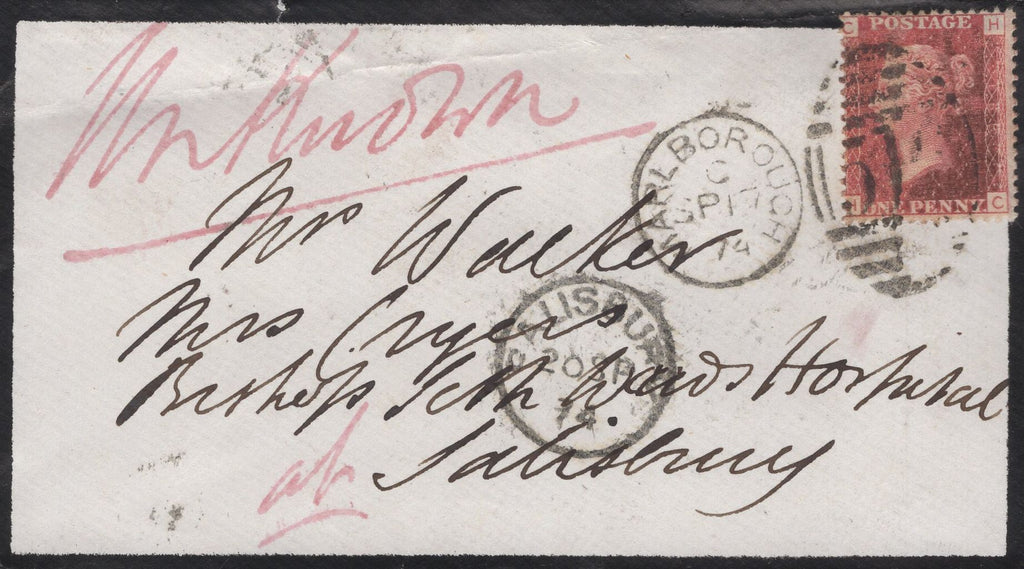 Unknown
C POSTAGE H
MARLBOROUGH
C
SP 17
74
H ONE PENNY C
Mrs Walker
SALISBURY
20 SP
74
Mrs Cryers
Bishop Seth Wards Hospital
Salisbury